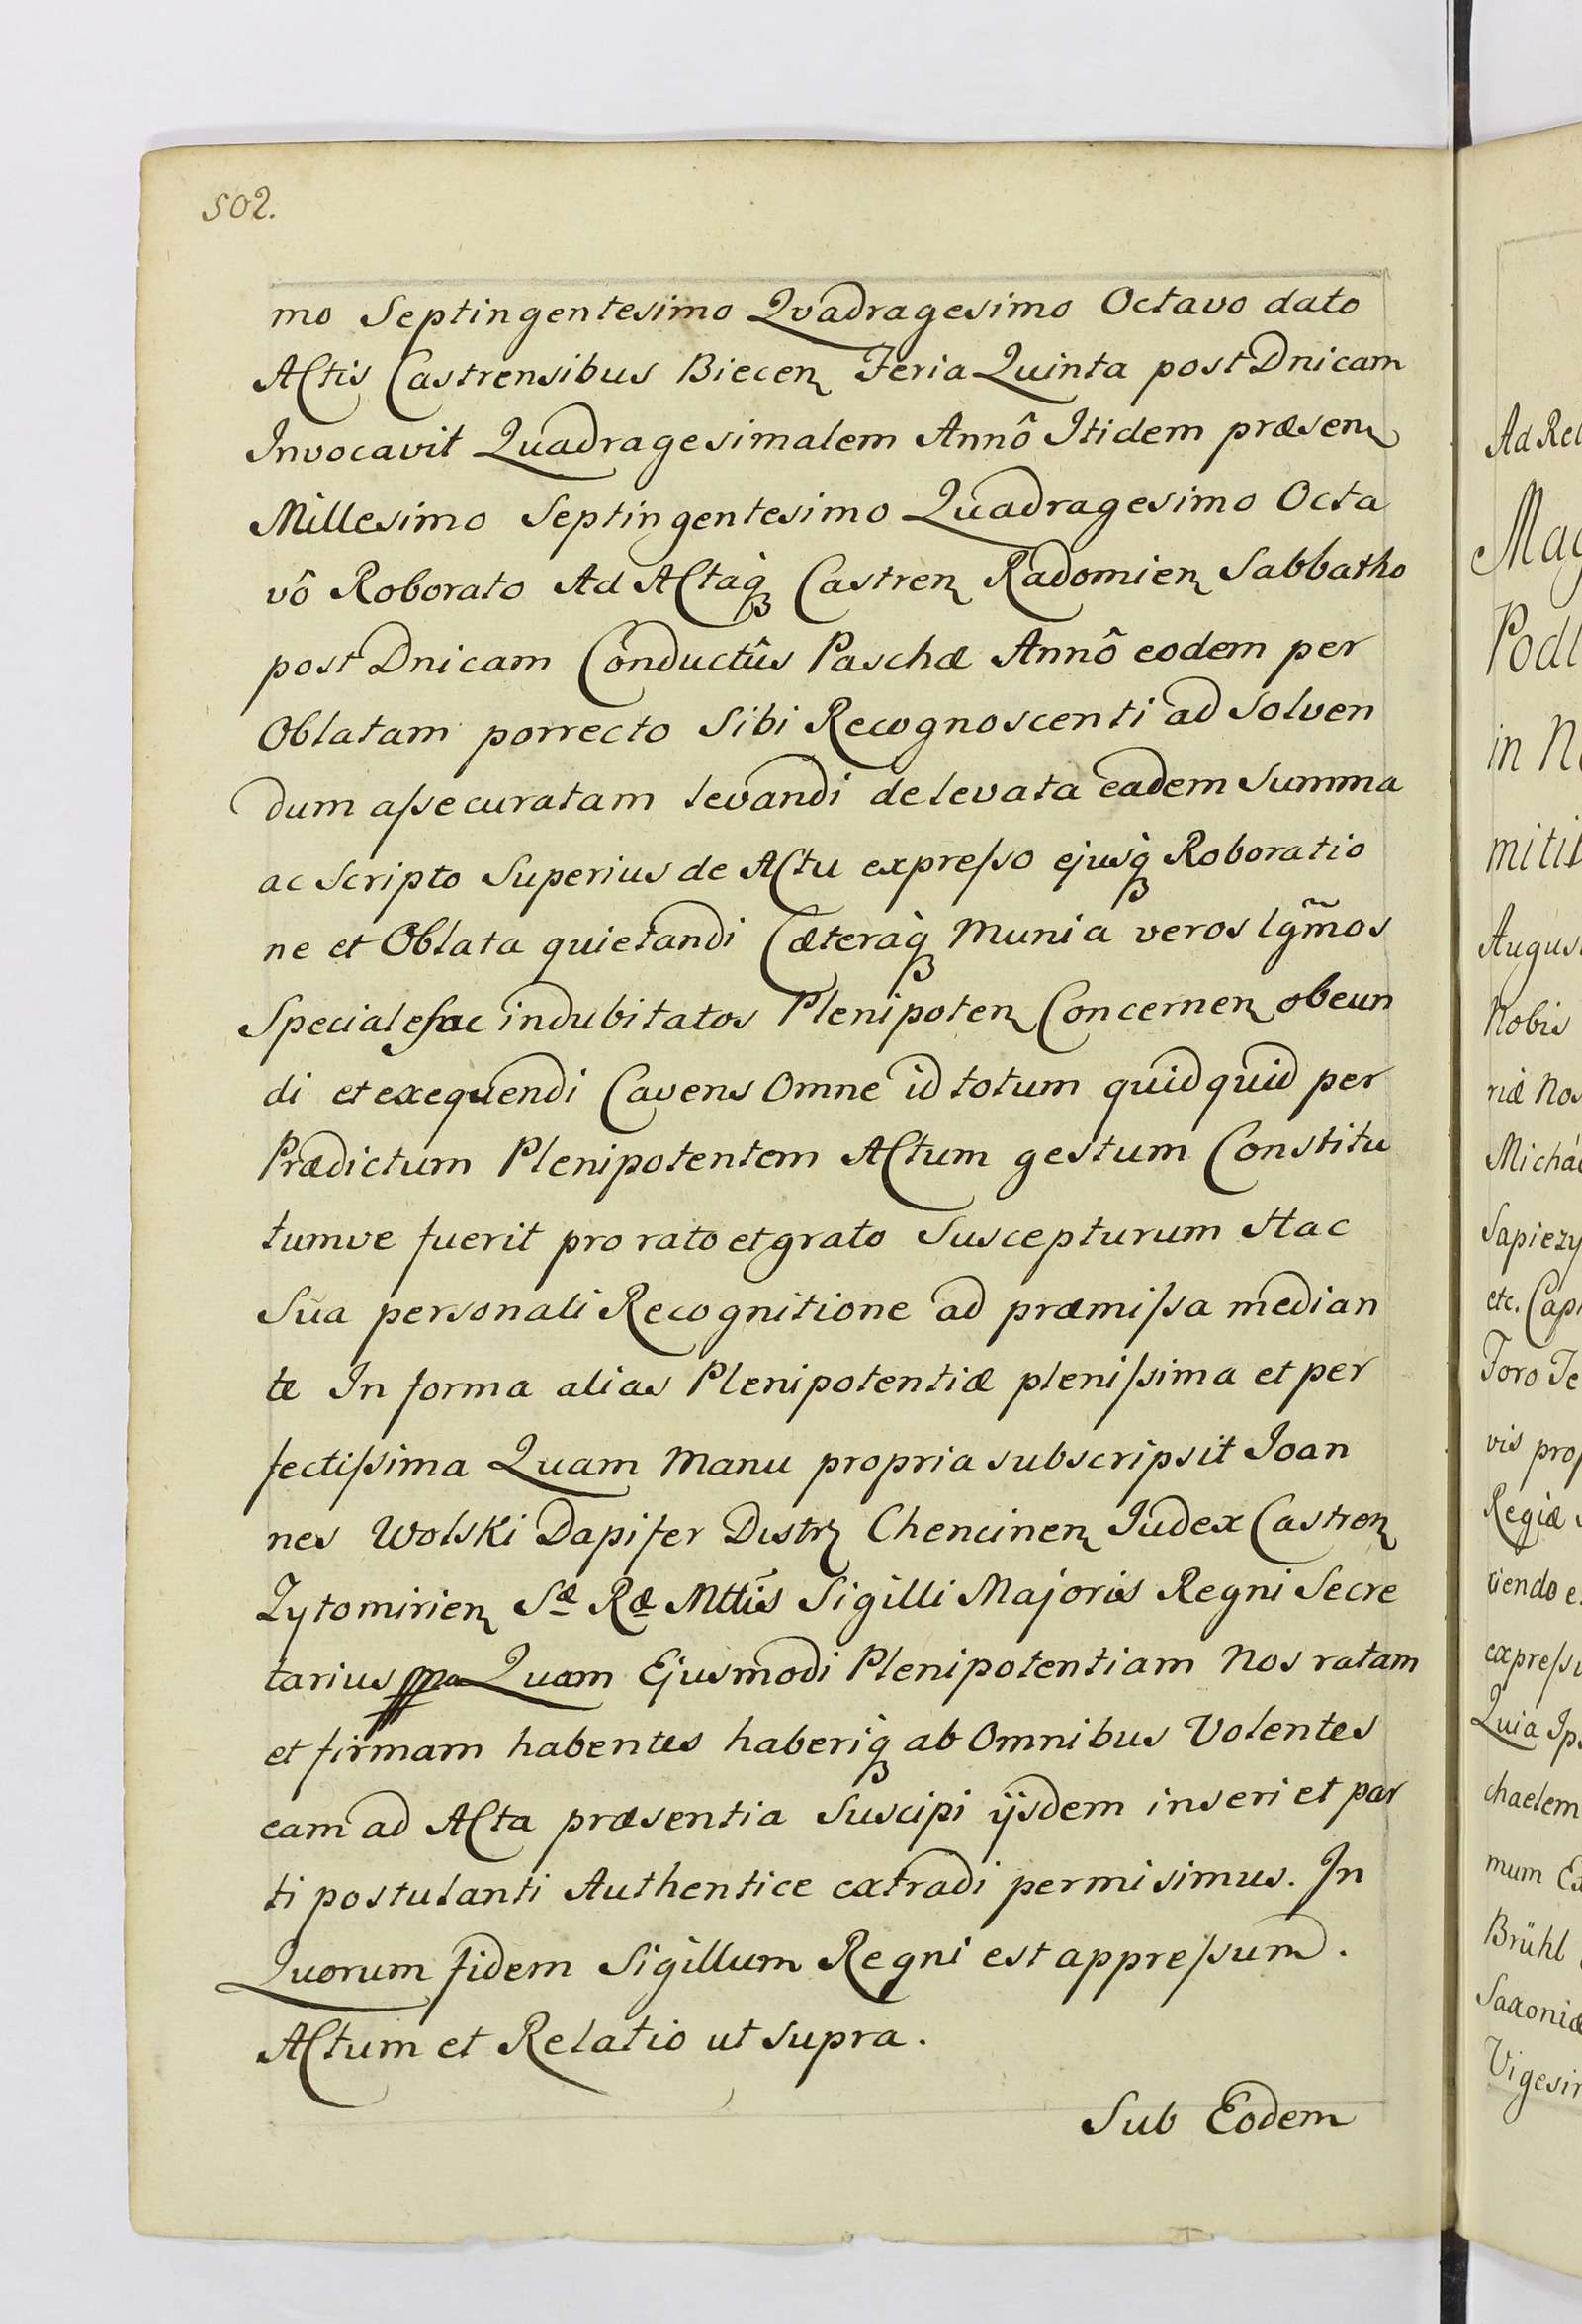 502.
mo Septingentesimo Qvadragesimo Octavo dato
Actis Castrensibus Biecen Feria Quinta post Dnicam
Invocavit Quadragesimalem Annô Itidem præsen
Millesimo Septingentesimo Quadragesimo Octa
vô Roborato Ad Actaq Castren Radomien Sabbatho
post Dnicam Conductûs Paschæ Annô eodem per
Oblatam porrecto Sibi Recognoscenti ad Solven
dum assecuratam levandi de levata eadem Summa
ac Scripto Superius de Actu expresso ejusq Roboratio
ne et Oblata quietandi Cæteraq Munia veros lgmos
Speciales ac indubitatos Plenipoten Concernen obeun
di et exequendi Cavens Omne id totum quidquid per
Prædictum Plenipotentem Actum gestum Constitu
tumve fuerit pro rato et grato Suscepturum Hac
Sua personali Recognitione ad præmissa median
te In forma alias Plenipotentiæ plenissima et per
fectissima Quam Manu propria subscripsit Joan
nes Wolski Dapifer Distr Chencinen Judex Castren
Zytomirien Sæ Ræ Mttis Sigilli Majoris Regni Secre
tarius mp Quam Ejusmodi Plenipotentiam Nos ratam
et firmam habentes haberiq ab Omnibus Volentes
eam ad Acta præsentia Suscipi ijsdem inseri et par
ti postulanti Authentice extradi permisimus. In
Quorum fidem Sigillum Regni est appressum.
Actum et Relatio ut supra.
Sub Eodem
Ad Rel
Mag
Podl
in N
mitis
Augus
Nobis
riæ Nos
Michá
Sapiezy
etc. Cap
Foro Te
vis prop
Regiæ
tiendo e
express
Quia Ips
chaelem
mum E
Brühl
Saxoniæ
Vigesi